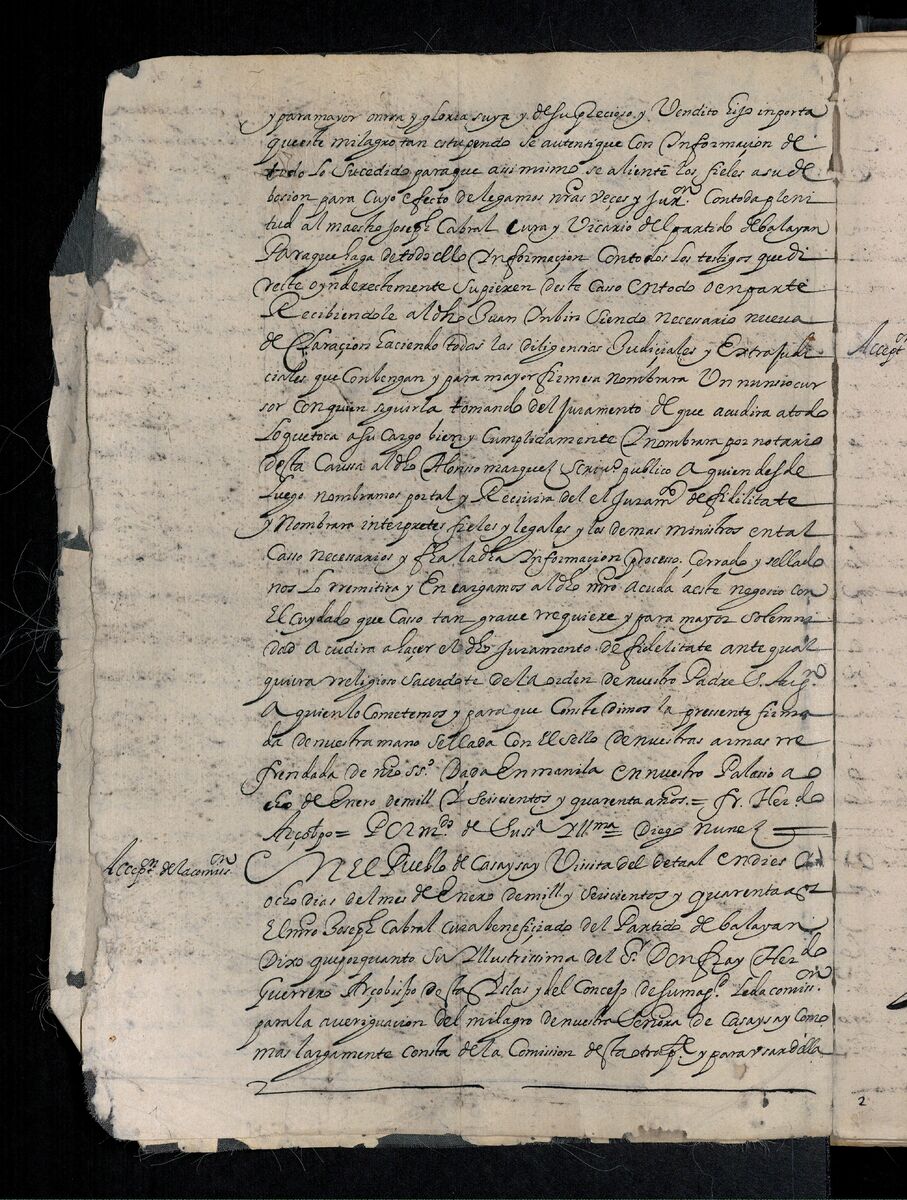 y para mayor onrra y gloria suya y de su preçioso y Vendito hijo inporta
que este milagro tan estupendo se autentique con Informaçion de
todo lo sucedido para que assimismo se alienten los fieles a su de
bosion para cuyo efecto delegamos nras veçes y jurⁿ. con toda pleni
tud al maestro Joseph Cabral cura y Vicario del partido de balayan
Para que haga de todo ello Informaçion con todos los testigos que di
recte o ynderectemente supieren deste casso en todo o en parte
Recibiendole al dho Juan Inbin siendo necesario nueva
declaraçion haciendo todas las diligensias Judiçiales y Extrajudi
ciales que conbengan y para mayor firmesa nombrara Un nunsio cur
sor con quien seguirla tomando del juramento de que acudira a todo
lo que toca a su cargo bien y cumplidamente y nombrara por notario
desta caussa al dho Alonso marquez scrivº. publico a quien desde
luego nombramos por tal y Reçivira del el juramº. de fidilitate
y Nombrara interpretes fieles y legales y los demas ministros en tal
casso necessarios y fha la dha Informaçion proçesso, çerrado y sellado
nos lo rremitira y Encargamos al dho mro acuda a este negoçio con
El cuydado que casso tan grave rrequiere y para mayor solemni
dad acudira a haçer el dho juramento de fidelitate ante qual
quiera rreligioso sacerdote de la orden de nuestro Padre S. Augⁿ.
a quien lo cometemos y para que conste dimos la pressente firma
da de nuestra mano sellada con el sello de nuestras armas rre
frendada de nro ssº. Dada En manila en nuestro Palaçio a
ocho de Enero de mill Y seiscientos y quarenta años. = fr. Herdo
Arçobpo = Por mdo de su sa Illma Diego nunez
Accepon de la comion
En el Pueblo de Casaysay Vissita del de taal en dies y
ocho dias del mes de Enero de mill y seiscientos y quarenta as
El mro Joseph Cabral cura benefiçiado del Partido de balayan
Dixo que por quanto su Illustrissima del Sr. Don fray Herdo
Guerrero Arçobispo destas Islas y del Consejo de su magd. le da comission
para la averiguacion del milagro de nuestra Señora de Casaysay Como
mas largamente consta de la Comission desta otra pte y para usar della
2